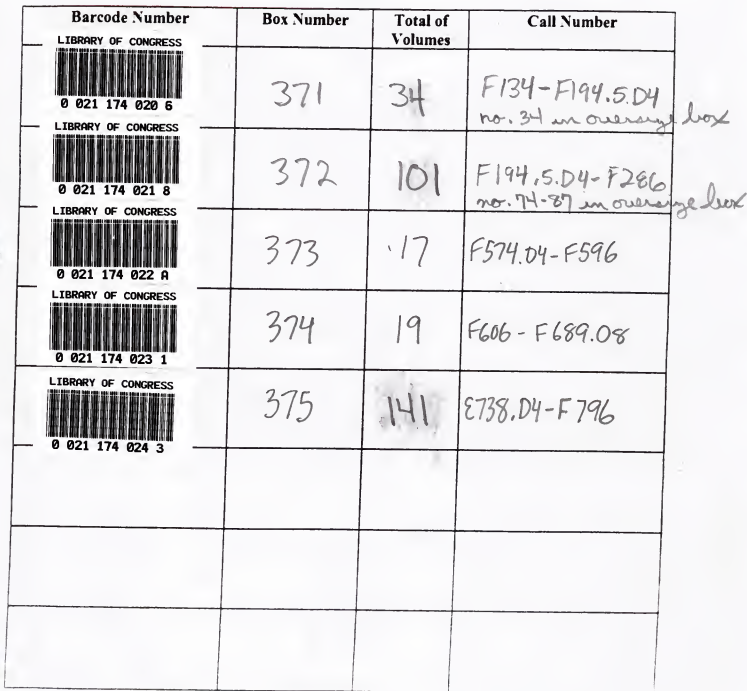 Barcode Number Box Number Total of Volumes Call Number
LIBRARY OF CONGRESS
0 021 174 020 6
371 34 F134-F194.5.D4
no. 34 in oversize box
LIBRARY OF CONGRESS
0 021 174 021 8
372 101 F194.5.D4-F286
no. 74-87 in oversize box
LIBRARY OF CONGRESS
0 021 174 022 A
373 17 F574.D4-F596
LIBRARY OF CONGRESS
0 021 174 023 1
374 19 F606-F689.O8
LIBRARY OF CONGRESS
0 021 174 024 3
375 141 E738.D4-F796